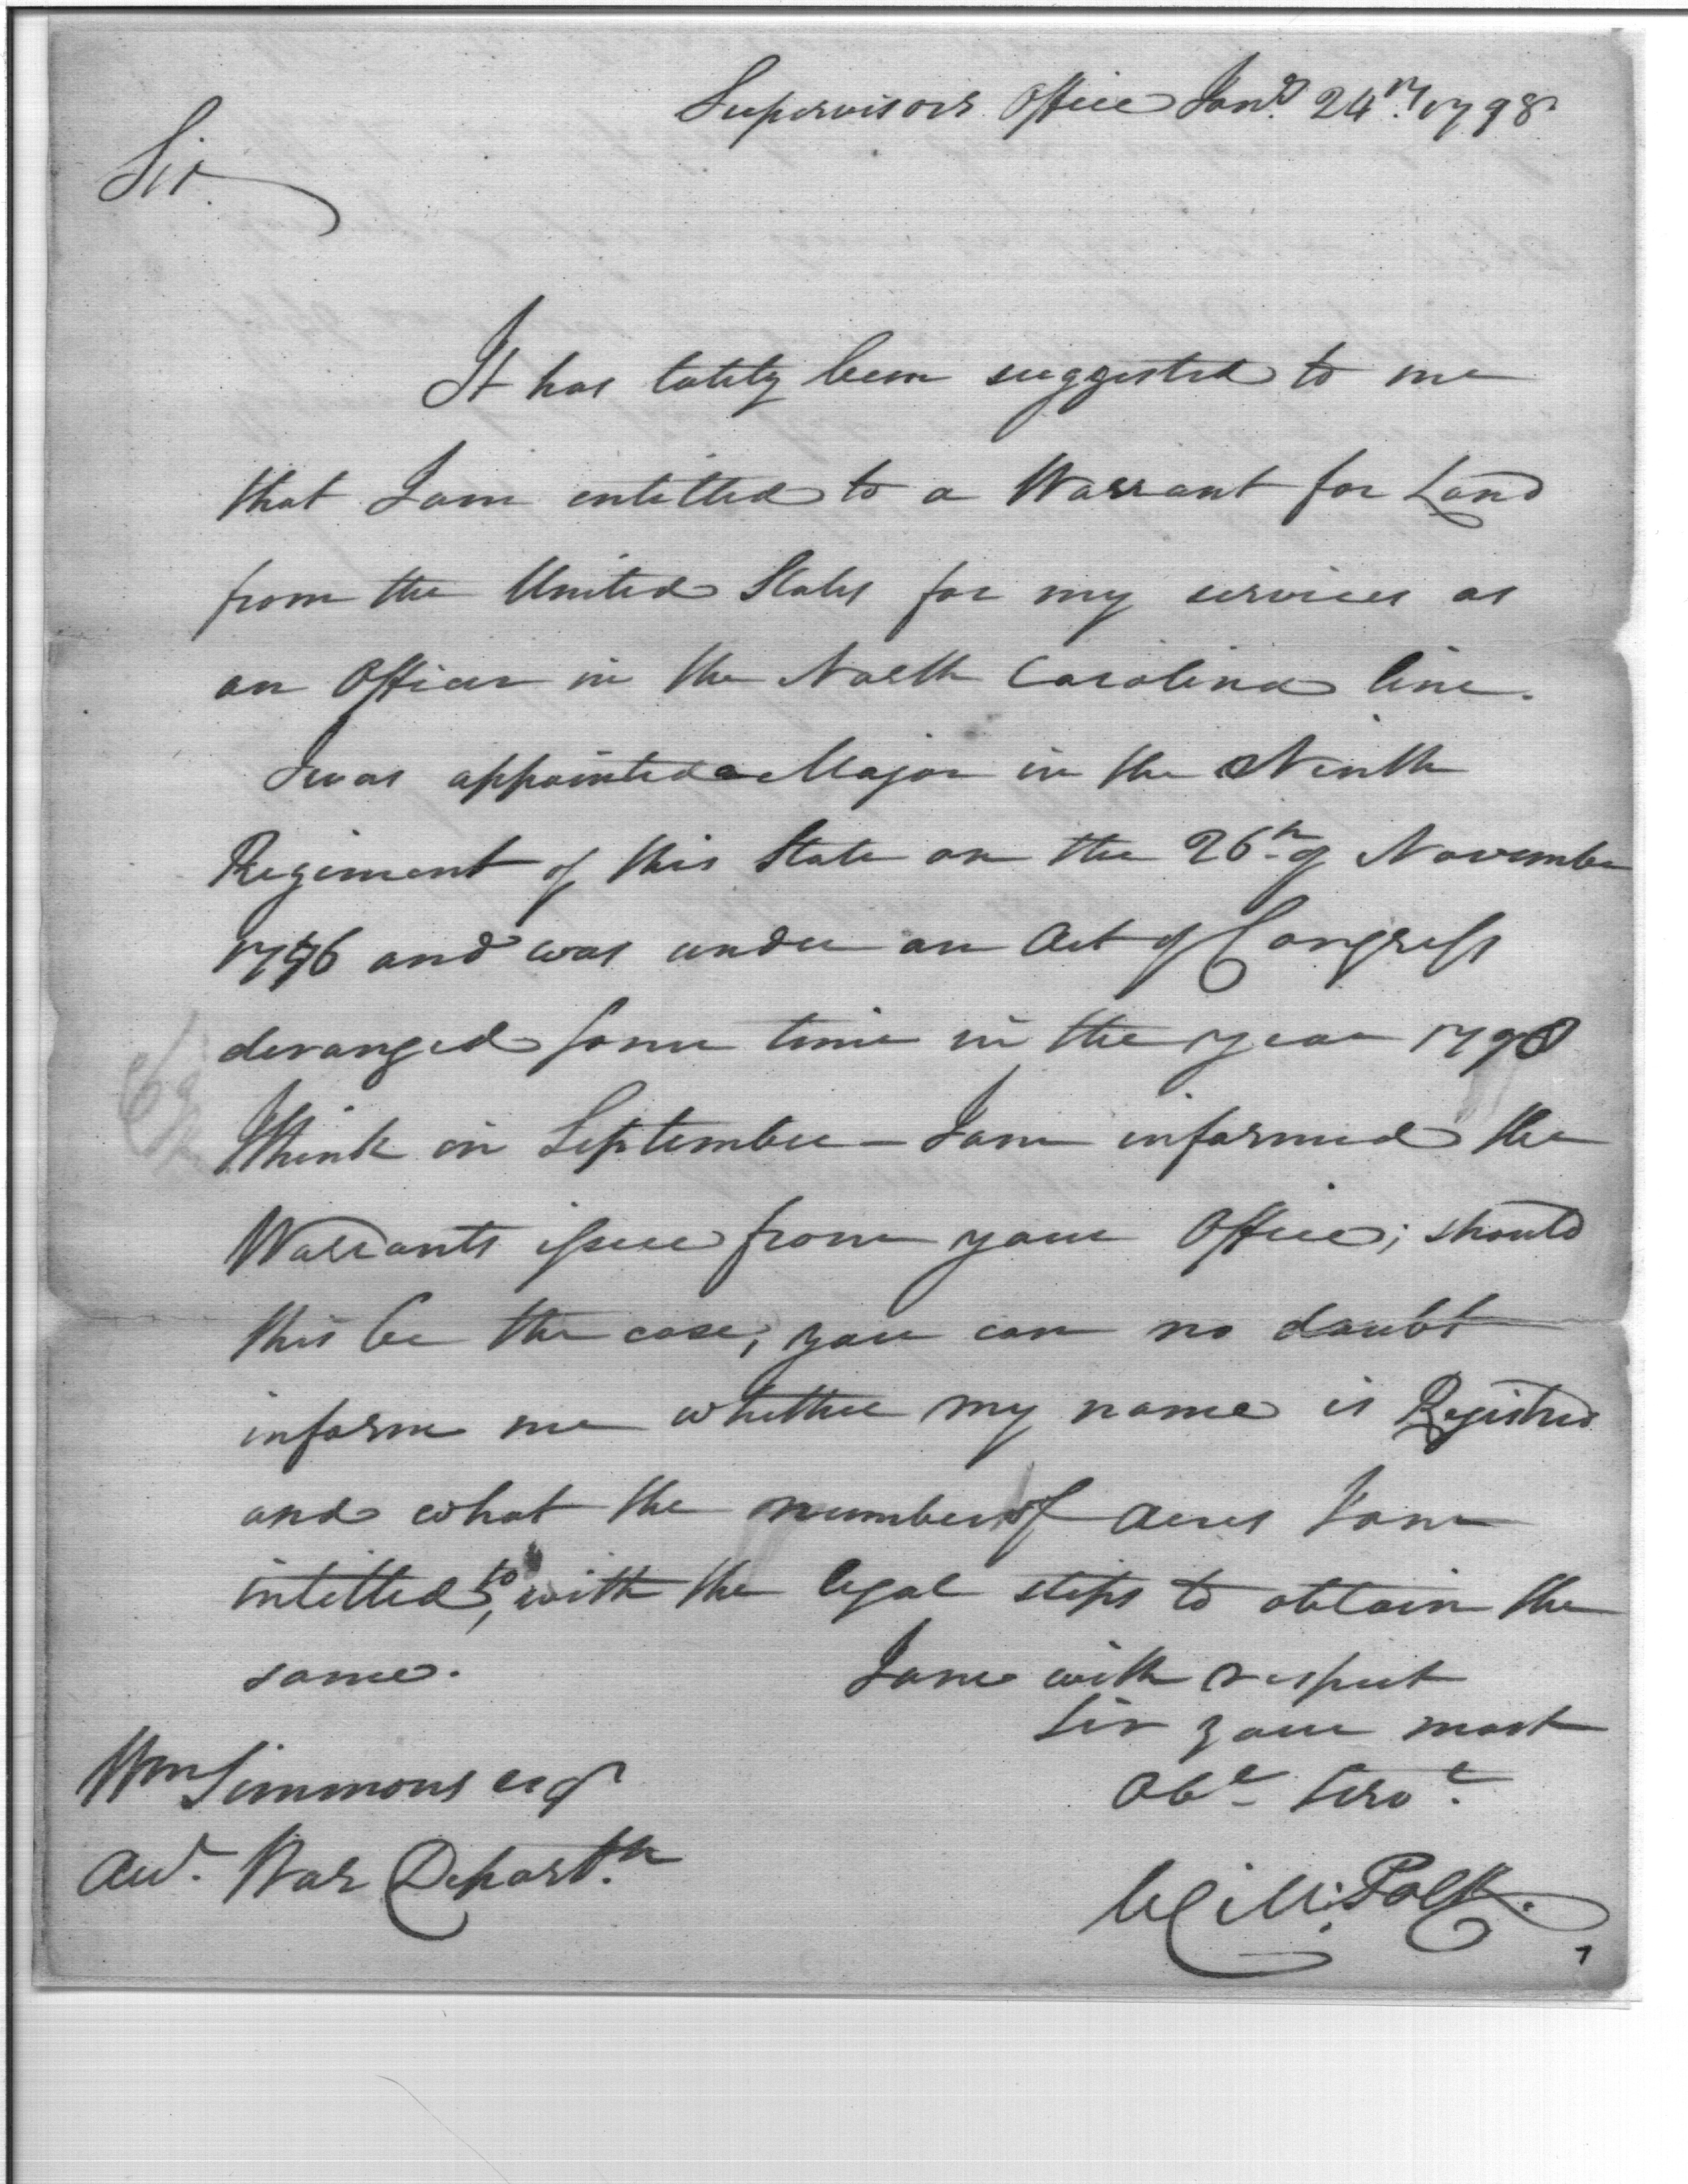 Supervisors Office Jany 24th 1798
Sir
It has lately been suggested to me
that I am entitled to a Warrant for Land
from the United States for my services as
an Officer in the North Carolina line.
I was appointed a Major in the Ninth
Regiment of this State on the 26th of November
1776 and was under an Act of Congress
deranged some time in the year
think in September – I am informed the
Warrants issue from your Office; should
this be the case, you can no doubt
inform me whether my name is Registred
and what the number of Acres I am
intitled to, with the legal steps to obtain the
same. I am with respect
Sir your most
Obt Servt
Wm Simmons esqr
War Departm
Will: Polk.
7